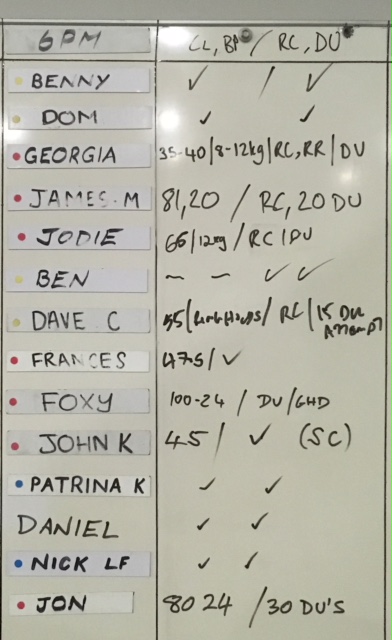 6PM CL, BP / RC, DU
BENNY ✓ / ✓
DOM ✓ ✓
GEORGIA 35-40/8-12kg/RC, RR/DU
JAMES.M 81,20 / RC, 20 DU
JODIE 66/12kg/RC/DU
BEN ~ ~ ✓ ✓
DAVE C 55/ / RC/15 DU
Attempt
FRANCES 47.5/✓
FOXY 100-24 / DU/GHD
JOHN K 45/ ✓ (SC)
PATRINA K ✓ ✓
DANIEL ✓ ✓
NICK LF ✓ ✓
JON 80 24 /30 DU'S